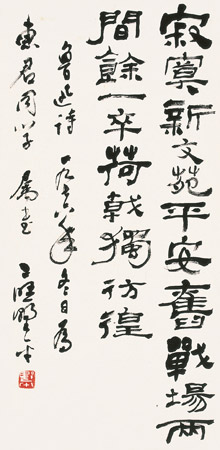 寂寞新文苑平安舊戰場兩
間餘一卒荷戟獨彷徨
魯迅詩 一九八年冬日為
東君同学 属书